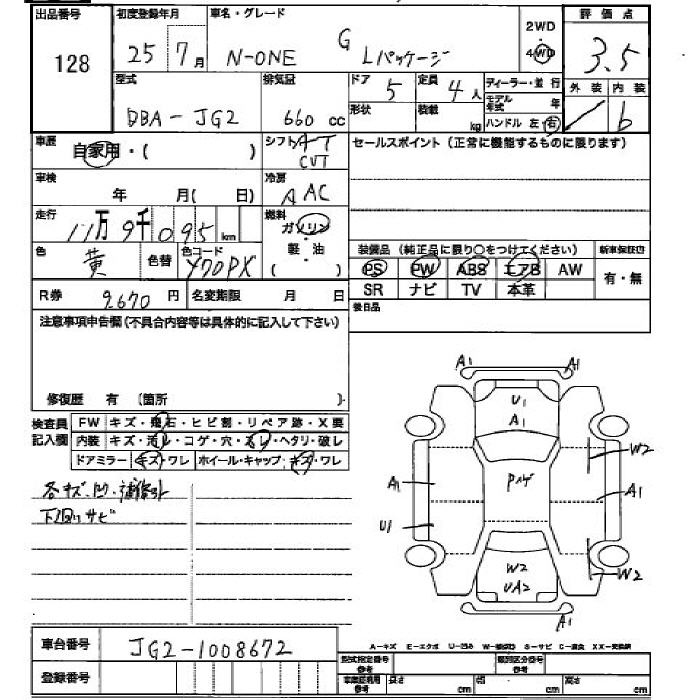 出品番号 初度登録年月 車名・グレード 2WD 評価点
128 25年7月 N-ONE G Lパッケージ 4WD 3.5
型式 排気量 ドア 定員 ディーラー・並行 外装 内装
DBA-JG2 660 cc 5 4人 モデル年式 年 b
形状 積載 kg ハンドル 左・右
車歴 自家用・( ) シフト AT CVT セールスポイント (正常に機能するものに限ります)
車検 年 月( 日) 冷房 AAC
走行 11万9千095 km 燃料 ガソリン 軽・油 ( )
色 黄 色替 色コード Y70PX 装備品 (純正品に限り○をつけてください) 新車保証書
PS PW ABS エアB AW 有・無
SR ナビ TV 本革
R券 9,670円 名変期限 月 日 後日品
注意事項申告欄(不具合内容等は具体的に記入して下さい)
修復歴 有 (箇所 )
検査員記入欄 FW キズ・飛石・ヒビ割・リペア跡・X要
内装 キズ・汚レ・コゲ・穴・スレ・ヘタリ・破レ
ドアミラー キズ・ワレ ホイール・キャップ キズ・ワレ
各キズ・凹・補修跡
下回りサビ
A1 A1
U1
A1
W2
Pハゲ
A1 A1
U1
W2 W2
UA2
A1
車台番号 JG2-1008672
登録番号
A-キズ E-エクボ U-凹み W-補修跡 S-サビ C-腐食 XX-交換済
型式指定番号 類別区分番号
車庫証明用 長さ cm 幅 cm 高さ cm